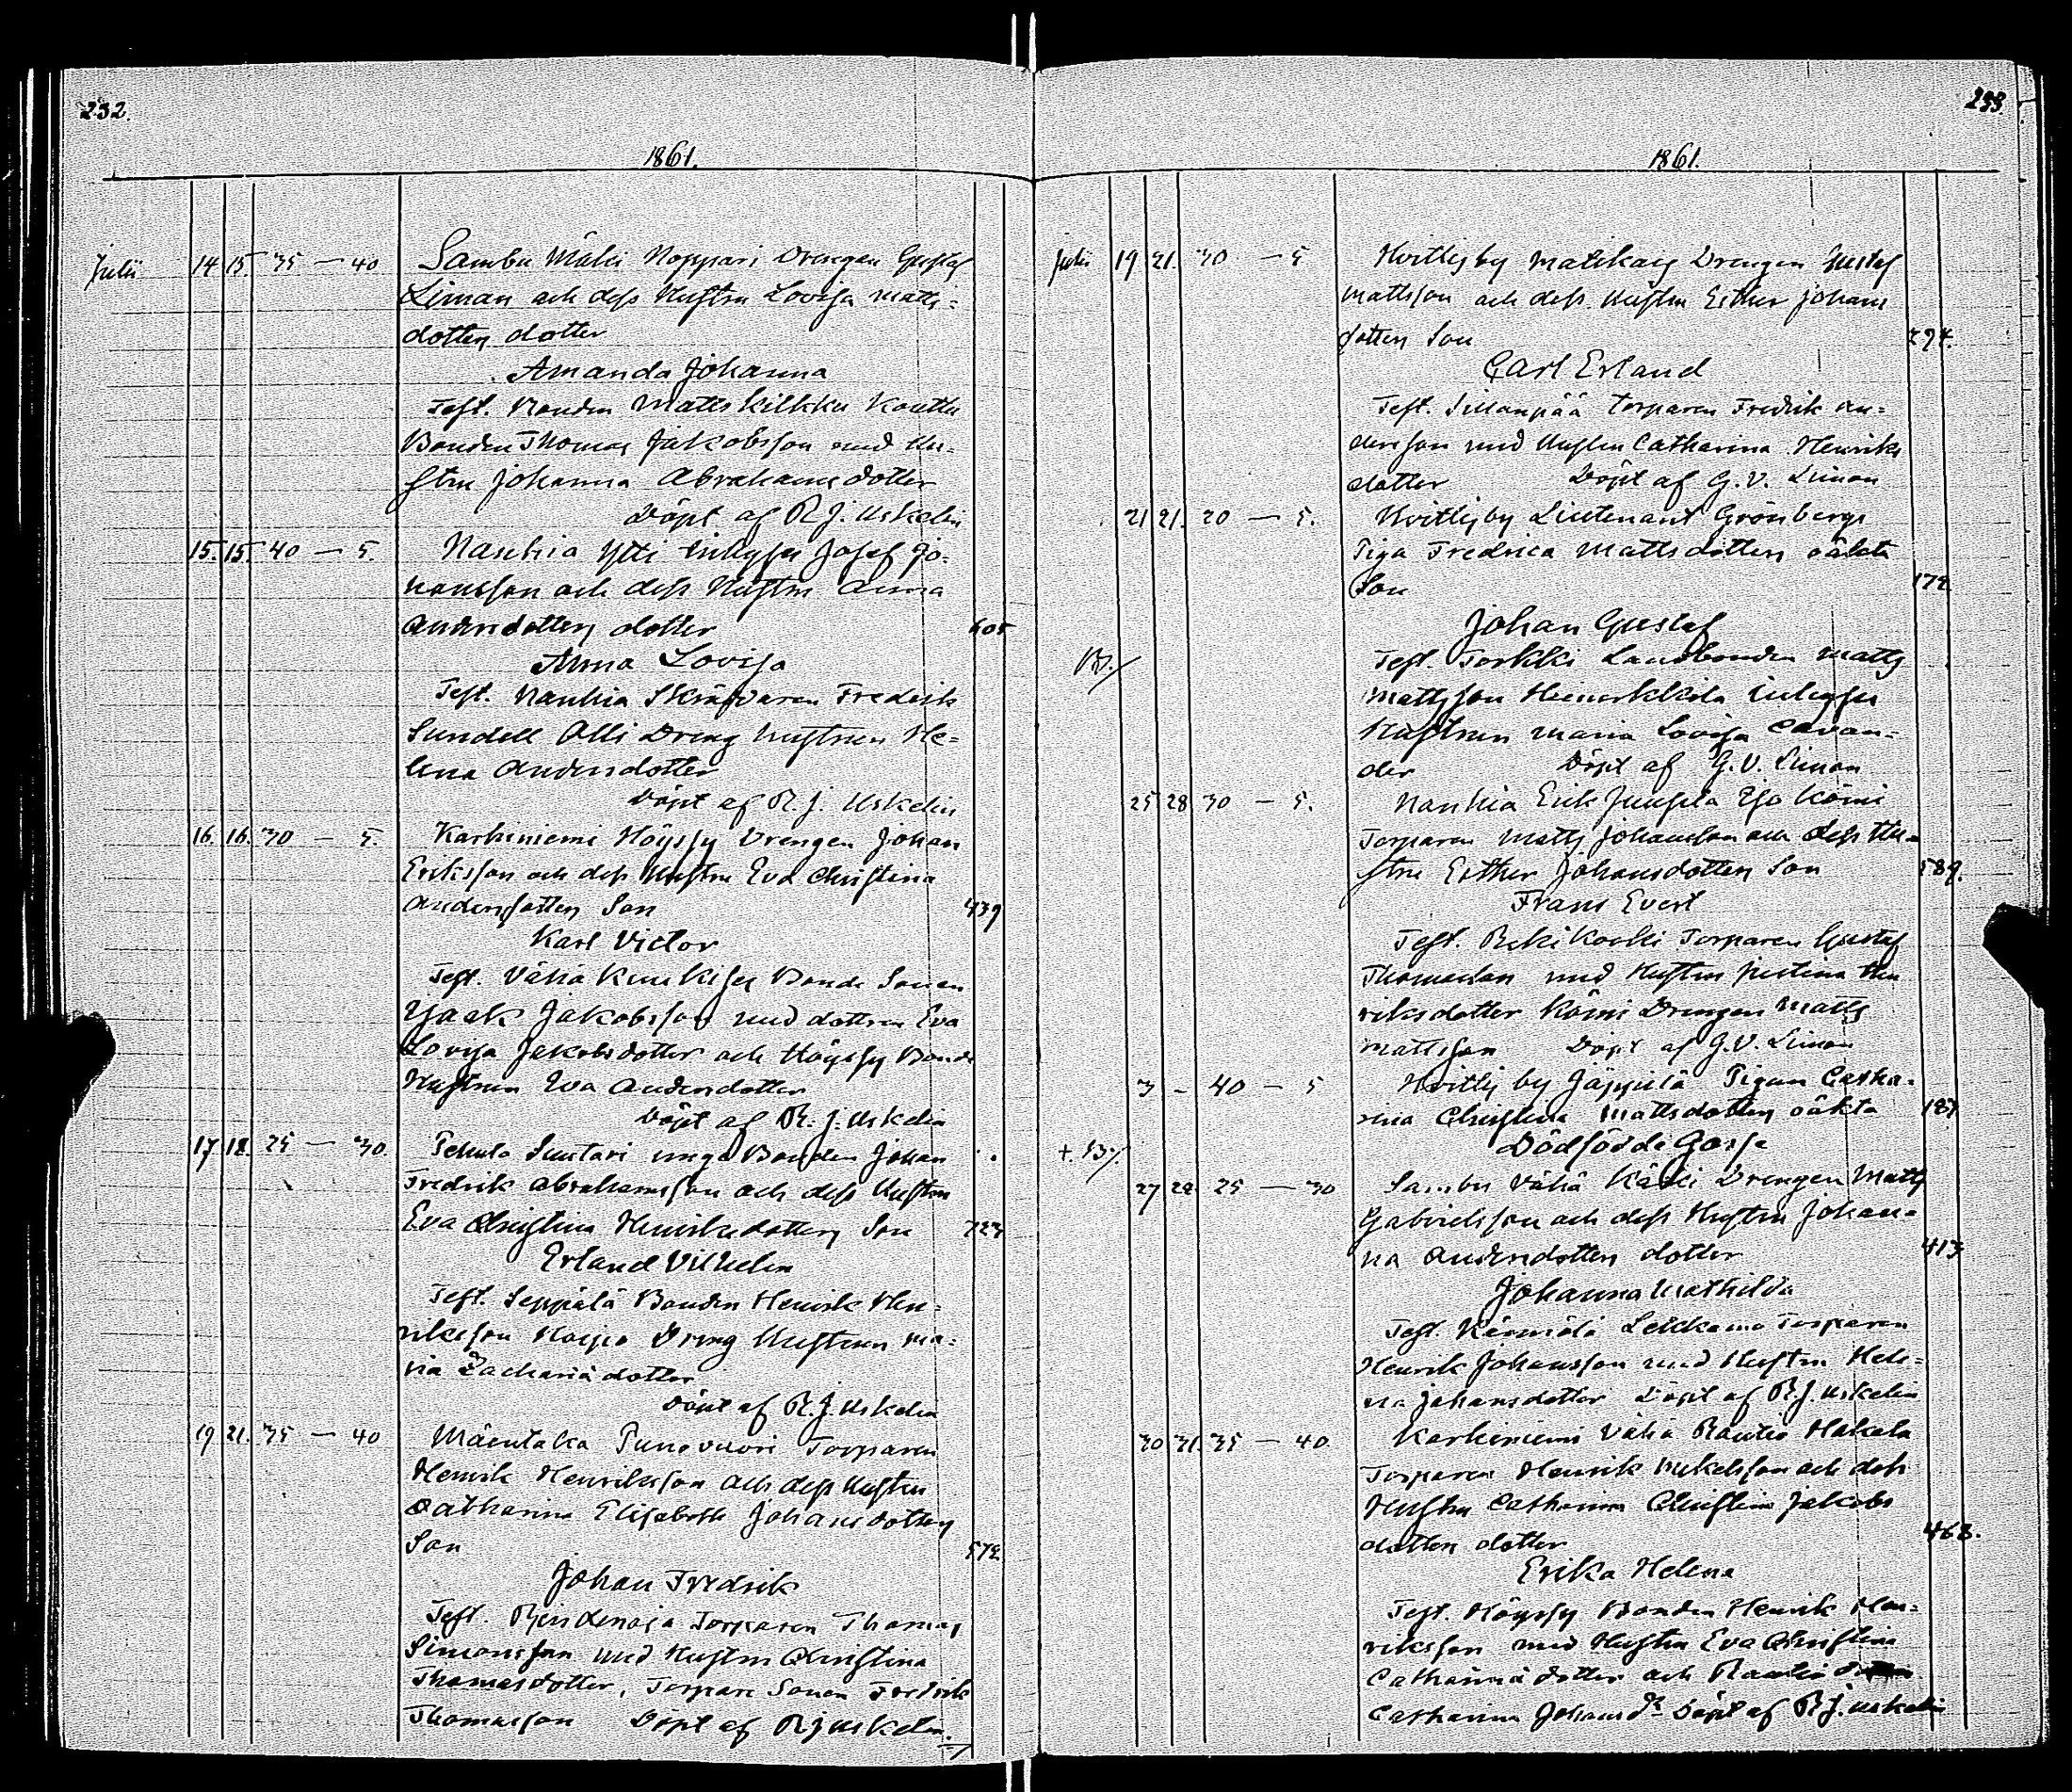 232.
1861.
Julii 14 15. 35 — 40 Sambu Mäki Noppari Drengen Gustaf
Liman och dess Hustru Lovisa Matts-
dotters dotter
Amanda Johanna
Test. Bonden Matts Kilkku Kouttu
Bonden Thomas Jakobsson med Hu-
stru Johanna Abrahamsdotter
Döpt af R. J. Uskelin
15. 15. 40 — 5. Nanhia Ytti inhyses Josef Jo-
hansson och dess Hustru Anna
Andersdotters dotter 605
Anna Lovisa
Test. Nanhia Skräddaren Fredrik
Sundell Olli Dreng Hustrun He-
lena Andersdotter
Döpt af R. J. Uskelin
16. 16. 30 — 5. Karhiniemi Höyssy Drengen Johan
Eriksson och dess Hustru Eva Christina
Andersdotters Son 439
Karl Victor
Test. Vähä Bonde Sonen
Isaak Jakobsson med dottren Eva
Lovisa Jakobsdotter och Höyssy Bonde
Hustrun Eva Andersdotter
Döpt af R. J. Uskelin
17 18. 25 — 30. Pehula Suutari unga Bonden Johan
Fredrik Abrahamsson och dess Hustru
Eva Christina Henriksdotters Son 723
Erland Vilhelm
Test. Seppälä Bonden Henrik Hen-
riksson Dreng Hustrun Ma-
ria Zachariädotter
Döpt af R. J. Uskelin
19 21. 35 — 40 Mäentaka Punavuori Torparen
Henrik Henriksson och dess Hustru
Catharina Elisabeth Johansdotters
Son 572
Johan Fredrik
Test. Torparen Thomas
Simonsson med Hustru Christina
Thomasdotter, Torpare Sonen Fredrik
Thomasson Döpt af R J Uskelin.
233.
1861.
Julii 19 21. 30 — 5 Hvittisby Drengen Gustaf
Mattsson och dess Hustru Esther Johans
dotters Son 294.
Carl Erland
Test. Sillanpää Torparen Fredrik An-
dersson med Hustru Catharina Henriks
dotter Döpt af G. V. Liman
21 21. 20 — 5. Hvittisby Lieutenant Grönbergs
Piga Fredrica Mattsdotters oäkta
Son 172.
Johan Gustaf
Test. Torkki Landbonden Matts
Mattsson inhyses
Hustrun Maria Lovisa Cavan-
der Döpt af G. V. Liman
25 28 30 — 5. Nanhia Erik Juusela Yljo Kömi
Torparen Matts Johansson och dess Hu-
stru Esther Johansdotters Son 589.
Frans Evert
Test. Torparen Gustaf
Thomasson med Hustru Justina Hen
riksdotter Kömi Drengen Matts
Mattsson Döpt af G. V. Liman
3 — 40 — 5 Hvittis by Jäppilä Pigan Catha-
rina Christina Mattsdotters oäkta 187.
Dödfödde Gosse
27 28. 25 — 30 Sambu Vähä Käki Drengen Matts
Gabrielsson och dess Hustru Johan-
na Andersdotters dotter 413
Johanna Mathilda
Test. Lekkama Torparen
Henrik Johansson med Hustru Hele-
na Johansdotter Döpt af R. J. Uskelin
30 31. 35 — 40. Karhiniemi Vähä Rautio Hakala
Torparen Henrik Mikelsson och dess
Hustru Catharina Christina Jakobs
dotters dotter 468.
Erika Helena
Test. Höyssy Bonden Henrik Hen-
riksson med Hustru Eva Christina
dotter och Rautio
Catharina Johansdr Döpt af R J. Uskelin